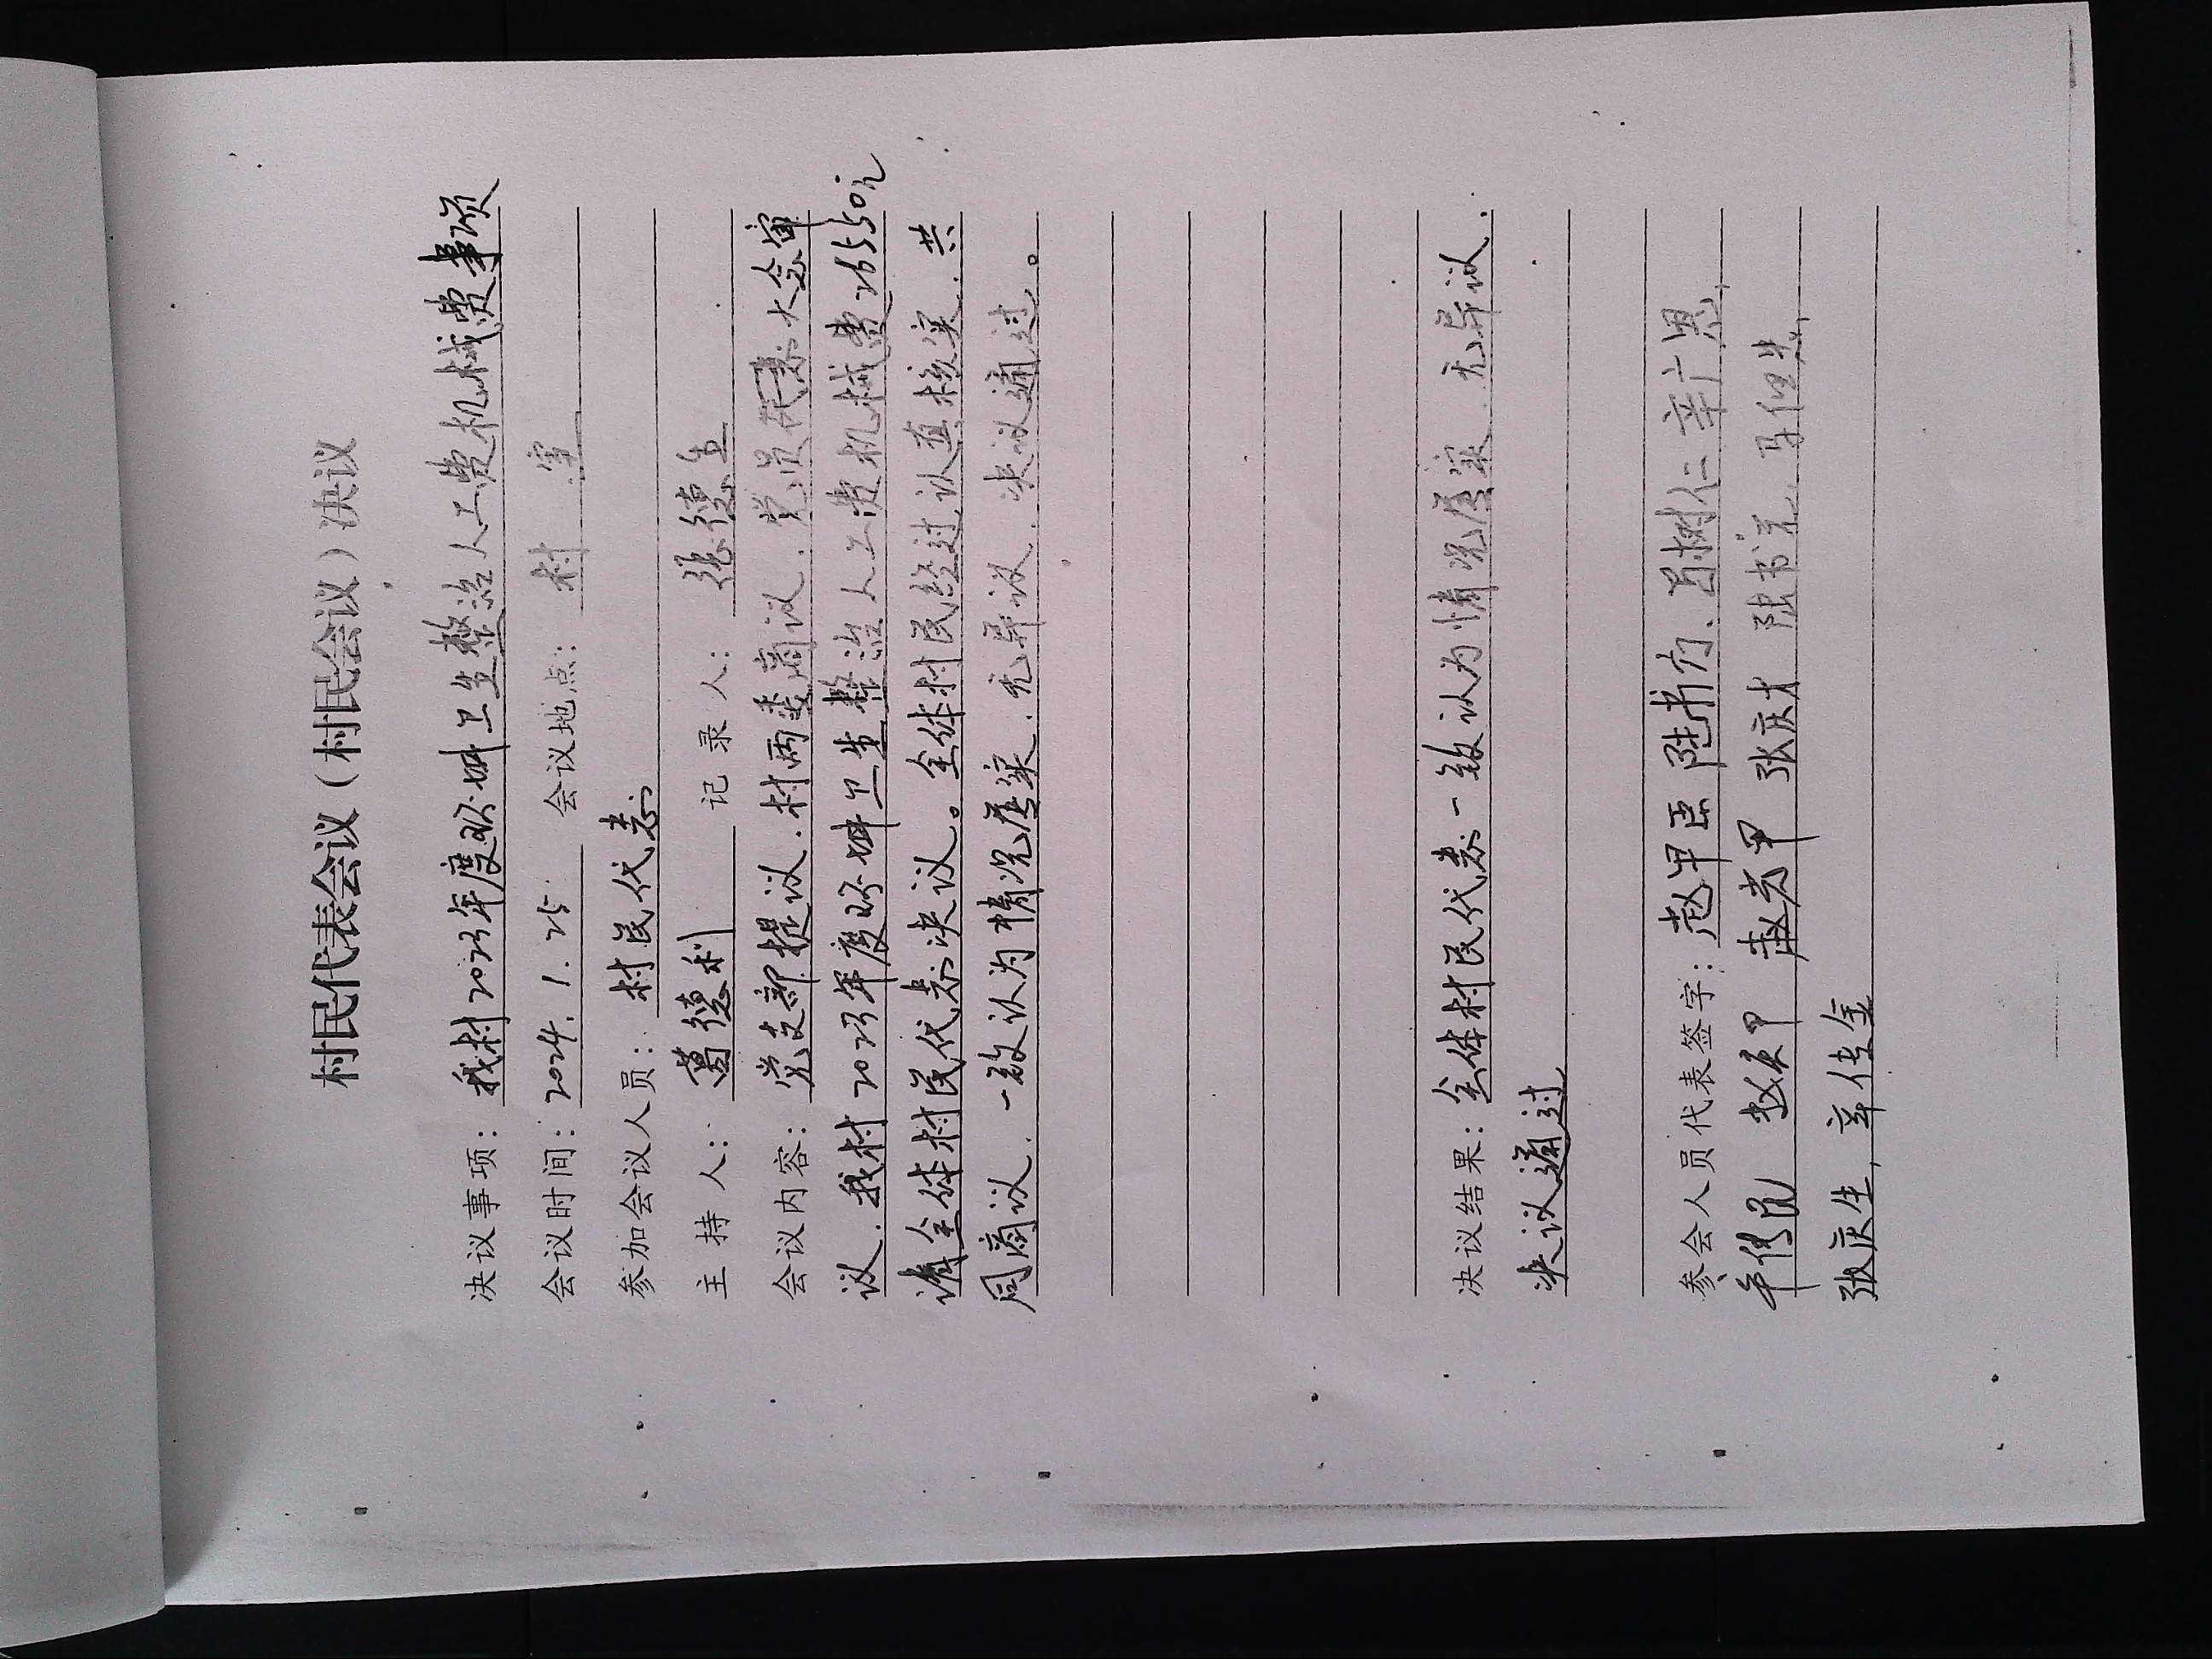 村民代表会议（村民会议）决议
决议事项：我村2023年度环境卫生整治人工费机械费事项
会议时间：2024.1.25 会议地点：村 室
参加会议人员：村民代表
主 持 人：葛德利 记 录 人：张德生
会议内容：党支部提议.村两委商议.党员大会审
议.我村2023年度环境卫生整治人工费机械费26550元
请全体村民代表决议。全体村民经过认真核实.共
同商议.一致认为情况属实.无异议.决议通过。
决议结果：全体村民代表一致认为情况属实.无异议.
决议通过
参会人员代表签字：赵甲臣 陆书方、葛树仁 辛广恩
赵庆甲 赵光甲 张庆才 陆书元
张庆生，辛传金